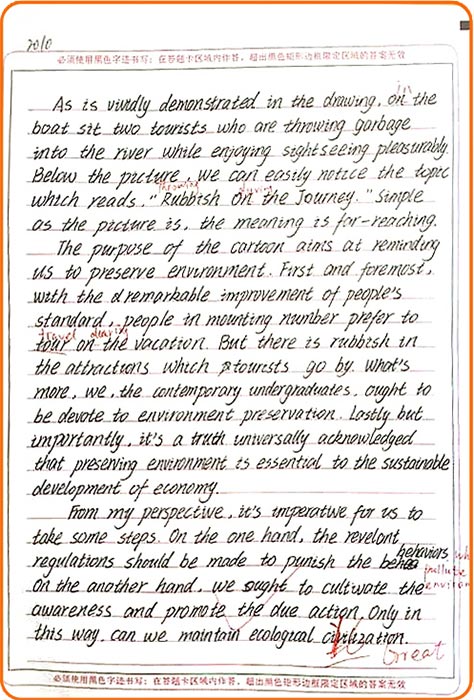 2010
必须使用黑色字迹书写；在答题卡区域内作答，超出黑色矩形边框限定区域的答案无效
in
As is vividly demonstrated in the drawing, on the
boat sit two tourists who are throwing garbage
into the river while enjoying sightseeing pleasurably.
Below the picture, we can easily notice the topic
throwing during
which reads, "Rubbish on the Journey." Simple
as the picture is, the meaning is far-reaching.
The purpose of the cartoon aims at reminding
us to preserve environment. First and foremost,
with the dremarkable improvement of people's
standard, people in mounting number prefer to
travel during
tour on the vacation. But there is rubbish in
the attractions which tourists go by. What's
more, we, the contemporary undergraduates, ought to
be devote to environment preservation. Lastly but
importantly, it's a truth universally acknowledged
that preserving environment is essential to the sustainable
development of economy.
From my perspective, it's imperative for us to
take some steps. On the one hand, the revelant
behaviors
regulations should be made to punish the
pollute
environ
On the another hand, we ought to cultivate the
awareness and promote the due action. Only in
this way, can we maintain ecological civilization.
Great
必须使用黑色字迹书写；在答题卡区域内作答，超出黑色矩形边框限定区域的答案无效